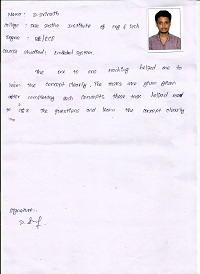 Name : D. Srinath
College : Sree Sastha Institute of Eng & Tech
Degree : BE/ECE
Course studied : Embedded System.
The one to one teaching helped me to
learn the concept clearly. The tasks are given
after completing each concepts. These task helped me
to the questions and learn the concept clearly
Signature: